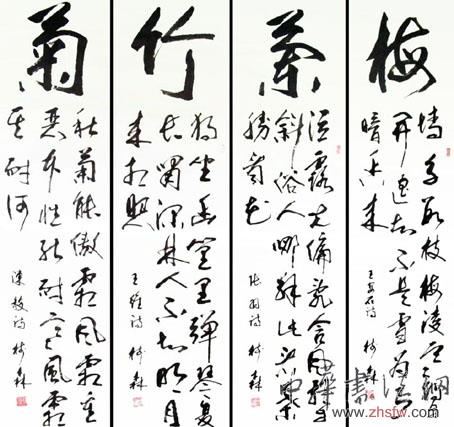 梅
墙角数枝梅凌寒独自
开遥知不是雪为有
暗香来
王安石诗 树森
兰
泣露光偏乱含风影自
斜俗人哪解此看叶
胜看花
张羽诗 树森
竹
独坐幽篁里弹琴复
长啸深林人不知明月
来相照
王维诗 树森
菊
秋菊能傲霜风霜重重
恶本性能耐寒风霜
其耐何
陈毅诗 树森
http://www.zhsfw.com